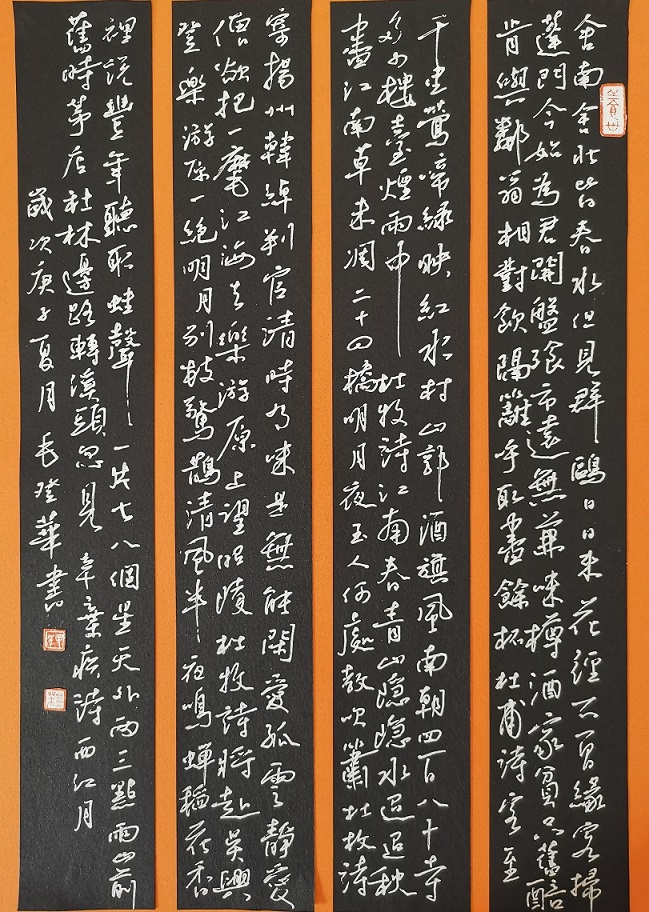 舍南舍北皆春水但見群鷗日日來花徑不曾緣客掃
蓬門今始為君開盤飧市遠無兼味樽酒家貧只舊醅
肯與鄰翁相對飲隔籬呼取盡餘杯杜甫詩客至
千里鶯啼綠映紅水村山郭酒旗風南朝四百八十寺
多少樓臺煙雨中杜牧詩江南春青山隱隱水迢迢秋
盡江南草未凋二十四橋明月夜玉人何處教吹簫杜牧詩
寄揚州韓綽判官清時有味是無能閑愛孤雲靜愛
僧欲把一麾江海去樂游原上望昭陵杜牧詩將赴吳興
登樂游原一絕明月別枝驚鵲清風半夜鳴蟬稻花香
裡說豐年聽取蛙聲一片七八個星天外兩三點雨山前
舊時茅店社林邊路轉溪頭忽見辛棄疾詩西江月
歲次庚子夏月毛登華書